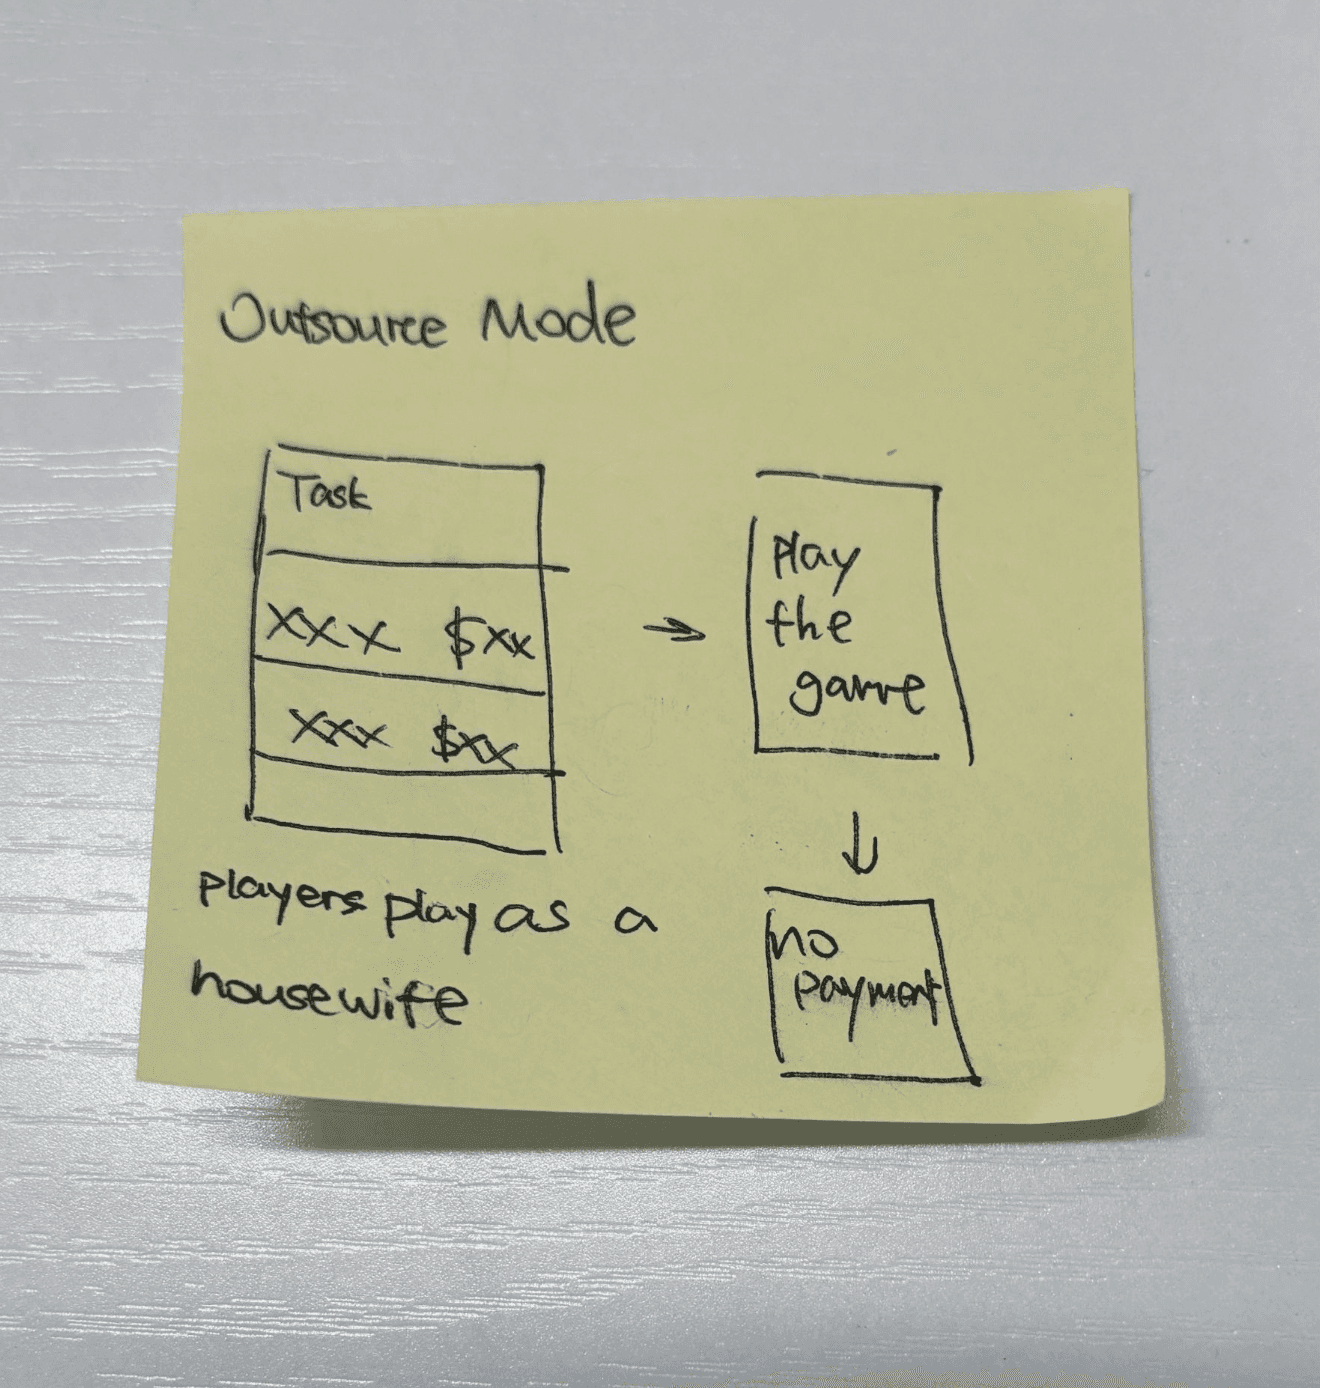 Outsource Mode
Task
xxx $xx
xxx $xx
players play as a
housewife
play
the
game
no
payment